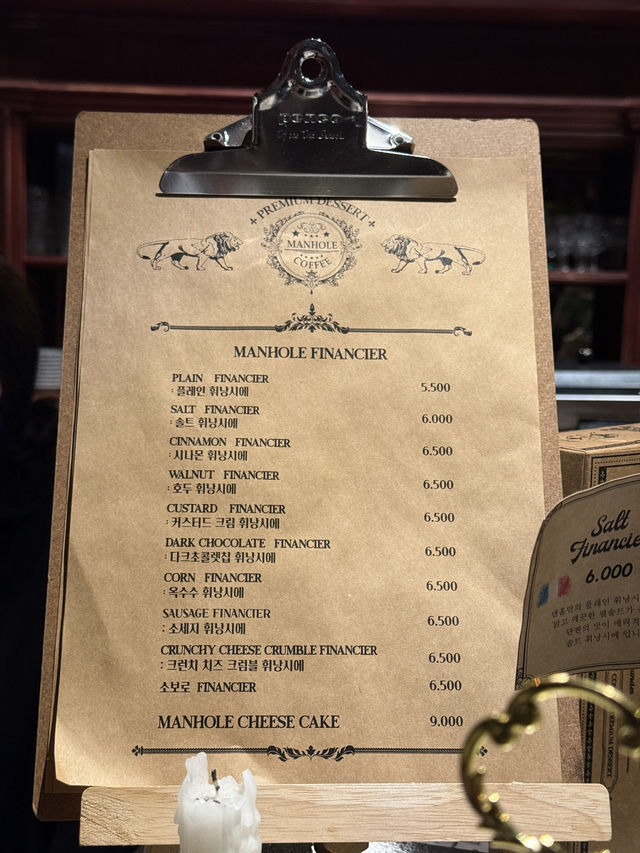 PREMIUM DESSERT
MANHOLE
COFFEE
MANHOLE FINANCIER
PLAIN FINANCIER
: 플레인 휘낭시에 5.500
SALT FINANCIER
: 솔트 휘낭시에 6.000
CINNAMON FINANCIER
: 시나몬 휘낭시에 6.500
WALNUT FINANCIER
: 호두 휘낭시에 6.500
CUSTARD FINANCIER
: 커스터드 크림 휘낭시에 6.500
DARK CHOCOLATE FINANCIER
: 다크초콜렛칩 휘낭시에 6.500
CORN FINANCIER
: 옥수수 휘낭시에 6.500
SAUSAGE FINANCIER
: 소세지 휘낭시에 6.500
CRUNCHY CHEESE CRUMBLE FINANCIER
: 크런치 치즈 크림블 휘낭시에 6.500
소보로 FINANCIER 6.500
MANHOLE CHEESE CAKE 9.000
Salt
Financie
6.000
맨홀만의 플레인 휘낭시
밝고 깨끗한 펄솔트가
단짠의 맛이 매력적
솔트 휘낭시에 입니
PREMIUM DESSERT